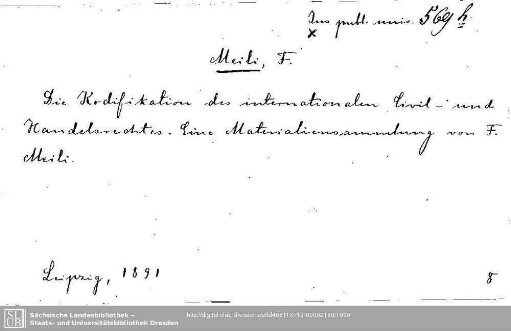 Jus publ. univ. 569 h
x
Meili, F.
Die Kodifikation des internationalen Civil- und
Handelsrechtes. Eine Materialiensammlung von F.
Meili.
Leipzig, 1891
8
SLUB
Sächsische Landesbibliothek –
Staats- und Universitätsbibliothek Dresden